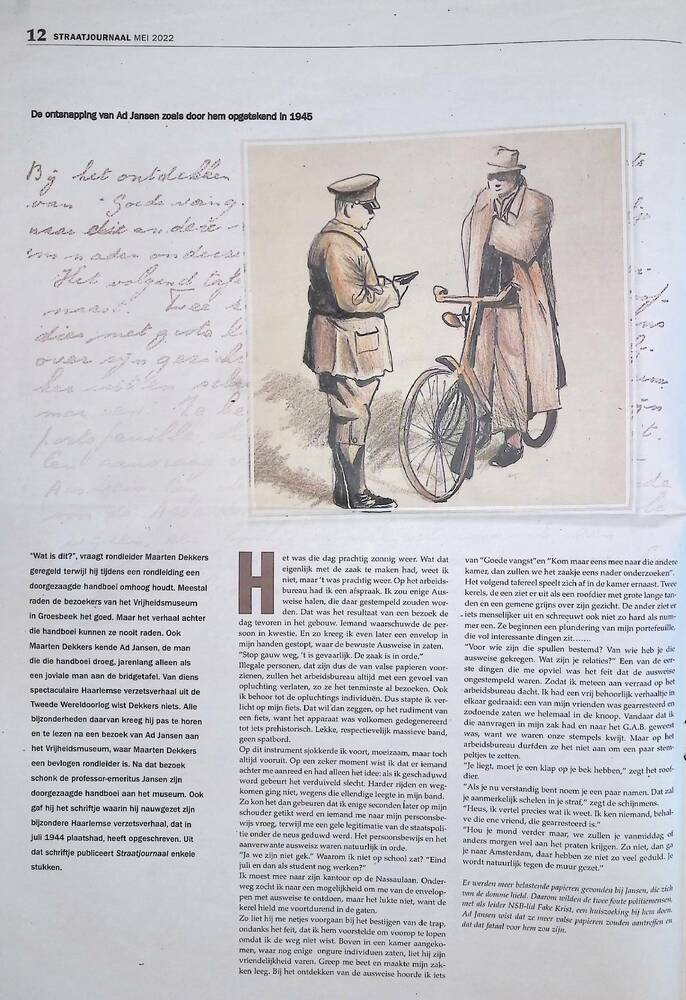 12 STRAATJOURNAAL MEI 2022
De ontsnapping van Ad Jansen zoals door hem opgetekend in 1945
Bij het ontdekken
van "Goede vang
naar die andere
Het volgend tafe
"Wat is dit?", vraagt rondleider Maarten Dekkers
geregeld terwijl hij tijdens een rondleiding een
doorgezaagde handboei omhoog houdt. Meestal
raden de bezoekers van het Vrijheidsmuseum
in Groesbeek het goed. Maar het verhaal achter
die handboei kunnen ze nooit raden. Ook
Maarten Dekkers kende Ad Jansen, de man
die die handboei droeg, jarenlang alleen als
een joviale man aan de bridgetafel. Van diens
spectaculaire Haarlemse verzetsverhaal uit de
Tweede Wereldoorlog wist Dekkers niets. Alle
bijzonderheden daarvan kreeg hij pas te horen
en te lezen na een bezoek van Ad Jansen aan
het Vrijheidsmuseum, waar Maarten Dekkers
een bevlogen rondleider is. Na dat bezoek
schonk de professor-emeritus Jansen zijn
doorgezaagde handboei aan het museum. Ook
gaf hij het schriftje waarin hij nauwgezet zijn
bijzondere Haarlemse verzetsverhaal, dat in
juli 1944 plaatshad, heeft opgeschreven. Uit
dat schriftje publiceert Straatjournaal enkele
stukken.
Het was die dag prachtig zonnig weer. Wat dat
eigenlijk met de zaak te maken had, weet ik
niet, maar 't was prachtig weer. Op het arbeids-
bureau had ik een afspraak. Ik zou enige Aus-
weise halen, die daar gestempeld zouden wor-
den. Dat was het resultaat van een bezoek de
dag tevoren in het gebouw. Iemand waarschuwde de per-
soon in kwestie. En zo kreeg ik even later een envelop in
mijn handen gestopt, waar de bewuste Ausweise in zaten.
"Stop gauw weg, 't is gevaarlijk. De zaak is in orde."
Illegale personen, dat zijn dus de van valse papieren voor-
zienen, zullen het arbeidsbureau altijd met een gevoel van
opluchting verlaten, zo ze het tenminste al bezoeken. Ook
ik behoor tot de opluchtings individuën. Dus stapte ik ver-
licht op mijn fiets. Dat wil dan zeggen, op het rudiment van
een fiets, want het apparaat was volkomen gedegenereerd
tot iets prehistorisch. Lekke, respectievelijk massieve band,
geen spatbord.
Op dit instrument sjokkerde ik voort, moeizaam, maar toch
altijd vooruit. Op een zeker moment wist ik dat er iemand
achter me aanreed en had alleen het idee: als ik geschaduwd
word gebeurt het verduiveld slecht. Harder rijden en weg-
komen ging niet, wegens die ellendige leegte in mijn band.
Zo kon het dan gebeuren dat ik enige seconden later op mijn
schouder getikt werd en iemand me naar mijn persoonsbe-
wijs vroeg, terwijl me een gele legitimatie van de staatspoli-
tie onder de neus geduwd werd. Het persoonsbewijs en het
aanverwante ausweisz waren natuurlijk in orde.
"Ja we zijn niet gek." Waarom ik niet op school zat? "Eind
juli en dan als student nog werken?"
Ik moest mee naar zijn kantoor op de Nassaulaan. Onder-
weg zocht ik naar een mogelijkheid om me van de envelop-
pen met ausweise te ontdoen, maar het lukte niet, want de
kerel hield me voortdurend in de gaten.
Zo liet hij me netjes voorgaan bij het bestijgen van de trap,
ondanks het feit, dat ik hem voorstelde om voorop te lopen
omdat ik de weg niet wist. Boven in een kamer aangeko-
men, waar nog enige ongure individuen zaten, liet hij zijn
vriendelijkheid varen. Greep me beet en maakte mijn zak-
ken leeg. Bij het ontdekken van de ausweise hoorde ik iets
van "Goede vangst"en "Kom maar eens mee naar die andere
kamer, dan zullen we het zaakje eens nader onderzoeken".
Het volgend tafereel speelt zich af in de kamer ernaast. Twee
kerels, de een ziet er uit als een roofdier met grote lange tan-
den en een gemene grijns over zijn gezicht. De ander ziet er
iets menselijker uit en schreeuwt ook niet zo hard als num-
mer een. Ze beginnen een plundering van mijn portefeuille,
die vol interessante dingen zit.......
"Voor wie zijn die spullen bestemd? Van wie heb je die
ausweise gekregen. Wat zijn je relaties?" Een van de eer-
ste dingen die me opviel was het feit dat de ausweise
ongestempeld waren. Zodat ik meteen aan verraad op het
arbeidsbureau dacht. Ik had een vrij behoorlijk verhaaltje in
elkaar gedraaid: een van mijn vrienden was gearresteerd en
zodoende zaten we helemaal in de knoop. Vandaar dat ik
die aanvragen in mijn zak had en naar het G.A.B. geweest
was, want we waren onze stempels kwijt. Maar op het
arbeidsbureau durfden ze het niet aan om een paar stem-
peltjes te zetten.
"Je liegt, moet je een klap op je bek hebben," zegt het roof-
dier.
"Als je nu verstandig bent noem je een paar namen. Dat zal
je aanmerkelijk schelen in je straf," zegt de schijnmens.
"Heus, ik vertel precies wat ik weet. Ik ken niemand, behal-
ve die ene vriend, die gearresteerd is."
"Hou je mond verder maar, we zullen je vanmiddag of
anders morgen wel aan het praten krijgen. Zo niet, dan ga
je naar Amsterdam, daar hebben ze niet zo veel geduld. Je
wordt natuurlijk tegen de muur gezet."
Er werden meer belastende papieren gevonden bij Jansen, die zich
van de domme hield. Daarom wilden de twee foute politiemensen,
met als leider NSB-lid Fake Krist, een huiszoeking bij hem doen.
Ad Jansen wist dat ze meer valse papieren zouden aantreffen en
dat dat fataal voor hem zou zijn.